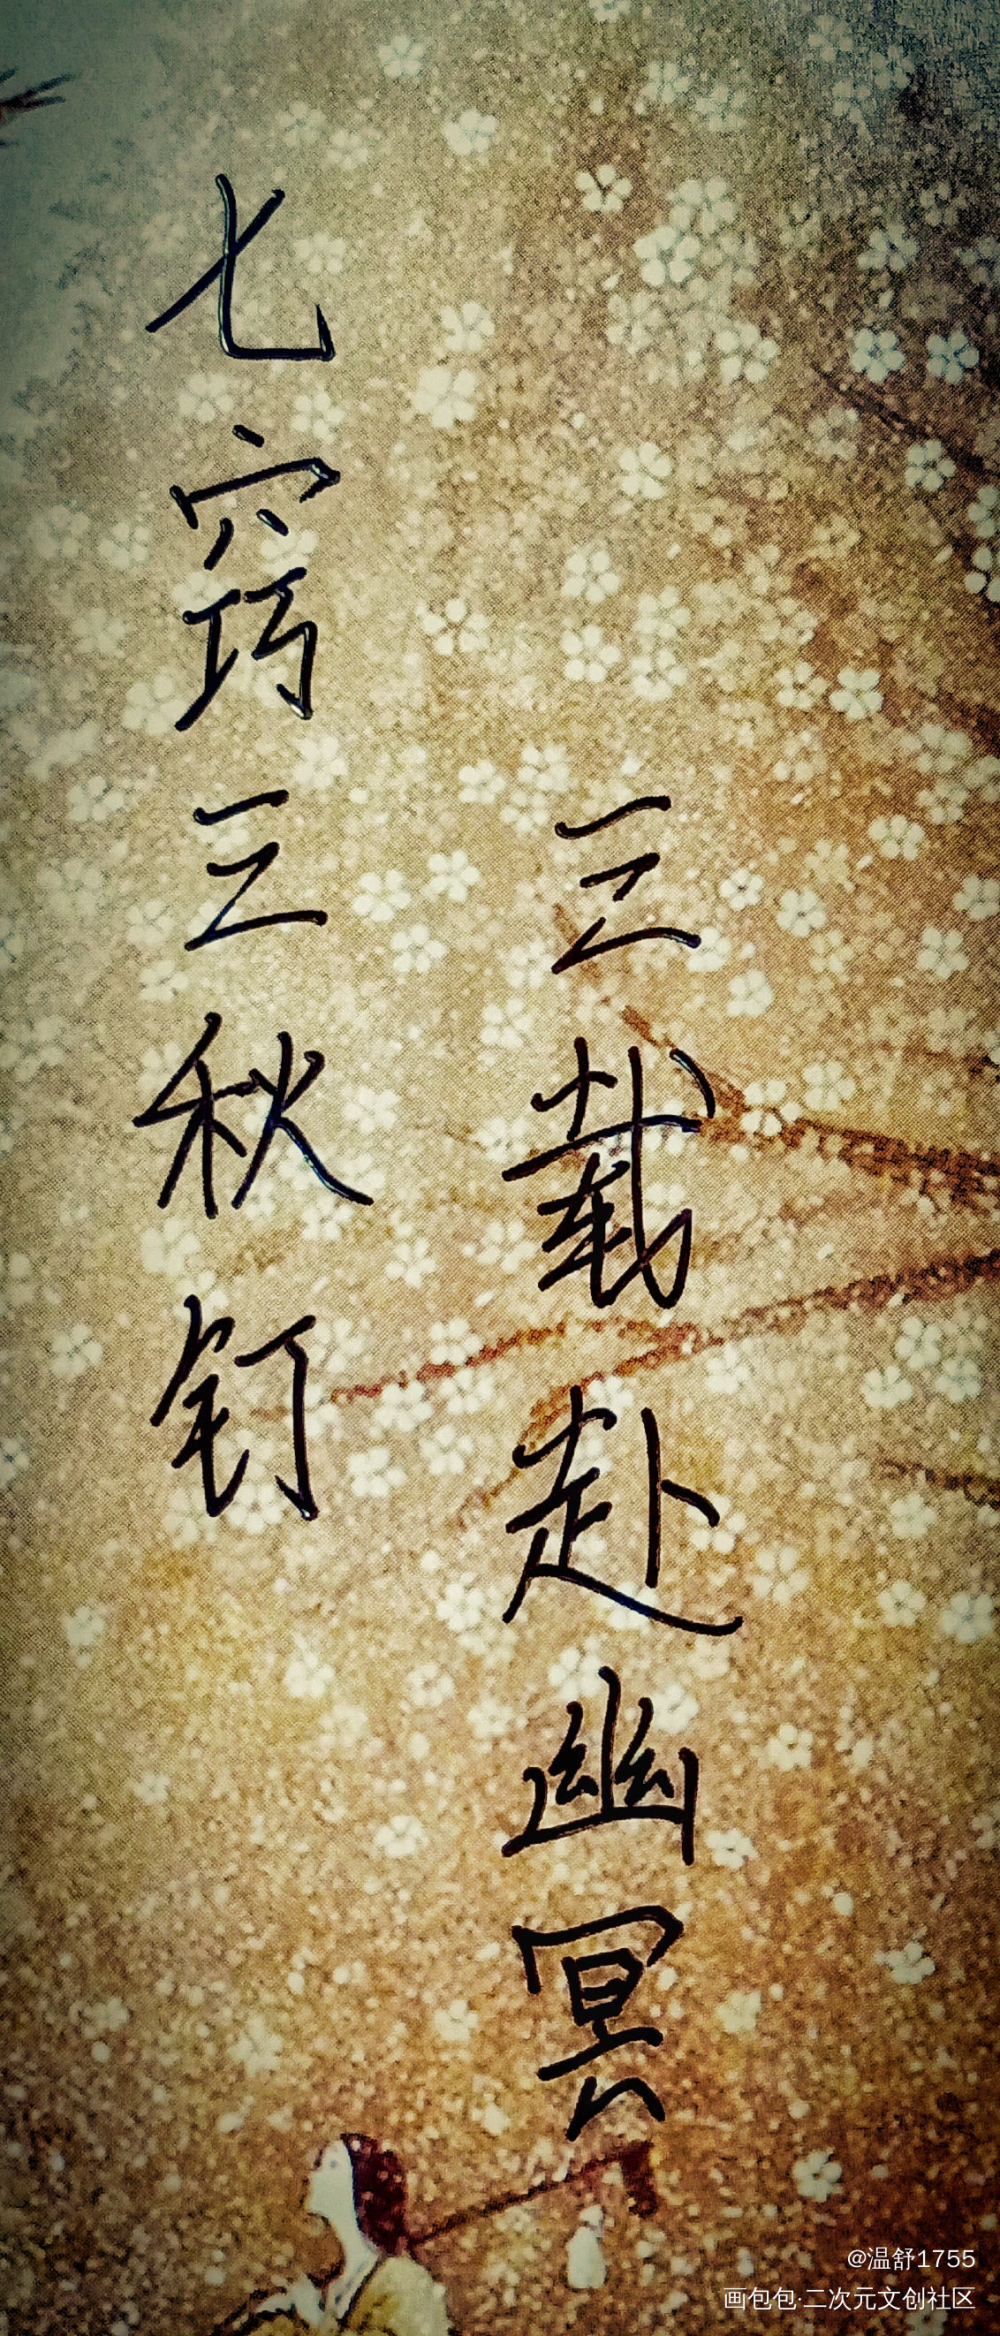 七窍三秋钉
三载赴幽冥
@温舒1755
画包包·二次元文创社区